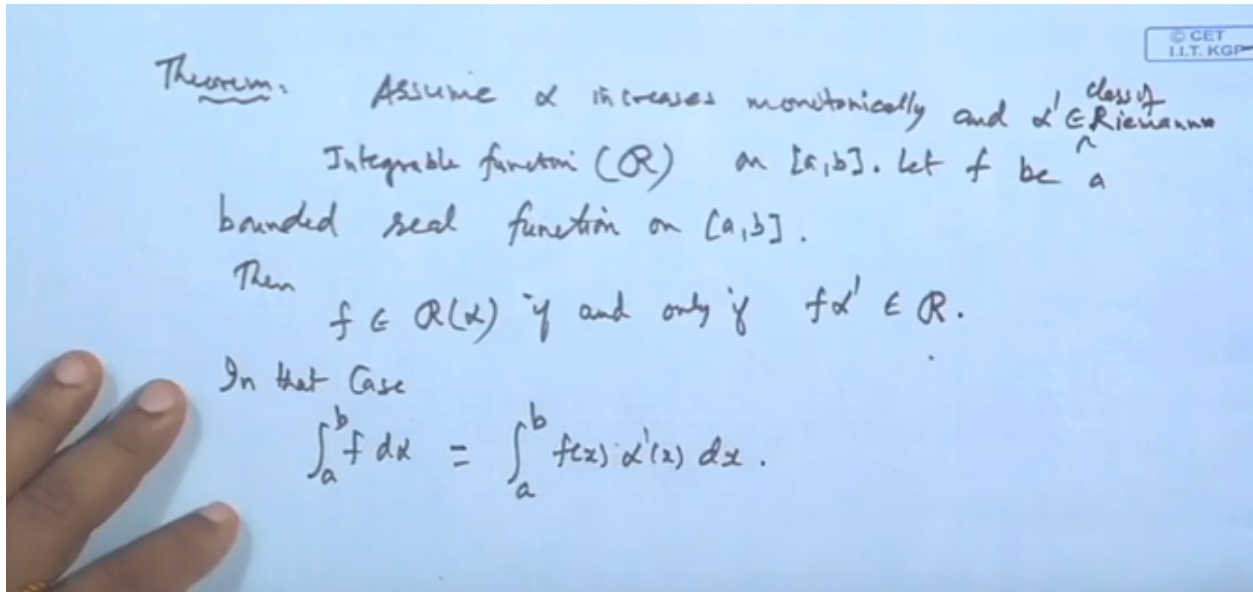 © CET
I.I.T. KGP
Theorem. Assume α increases monotonically and α' ∈ class of Riemann
Integrable function (R) on [a,b]. Let f be a
bounded real function on [a,b].
Then
f ∈ R(α) if and only if fα' ∈ R.
In that Case
∫_a^b f dα = ∫_a^b f(x) α'(x) dx.